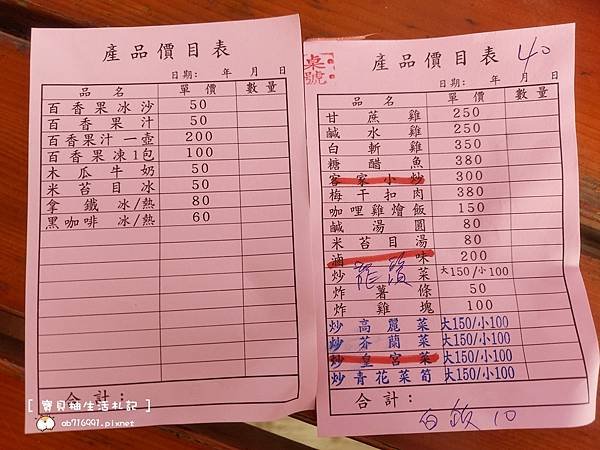 產品價目表
日期: 年 月 日
品名 單價 數量
百香果冰沙 50
百香果汁 50
百香果汁一壺 200
百香果凍1包 100
木瓜牛奶 50
米苔目冰 50
拿鐵 冰/熱 80
黑咖啡 冰/熱 60
合計:
[ 寶貝柚生活札記 ]
ab716991.pixnet
桌號
產品價目表 40
日期: 年 月 日
品名 單價 數量
甘蔗雞 250
鹹水雞 250
白斬雞 350
糖醋魚 380
客家小炒 300
梅干扣肉 380
咖哩雞燴飯 150
鹹湯圓 80
米苔目湯 80
滷味 200
炒龍鬚菜 大150/小100
炸薯條 50
炸雞塊 100
炒高麗菜 大150/小100
炒芥蘭菜 大150/小100
炒皇宮菜 大150/小100
炒青花菜筍 大150/小100
合計:
白飯 10